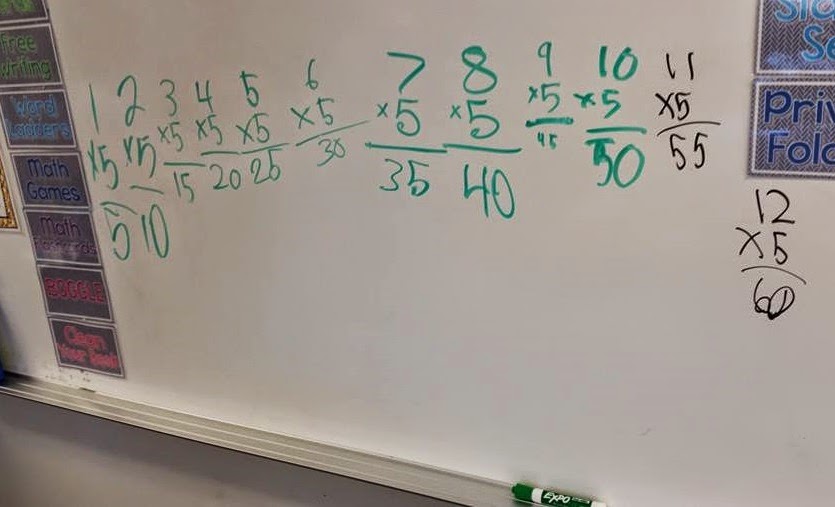 Free
Writing
Word
Ladders
Math
Games
Math
Flashcards
BOGGLE
Clean
Your Desk
1 2 3 4 5 6 7 8 9 10 11
×5 ×5 ×5 ×5 ×5 ×5 ×5 ×5 ×5 ×5 ×5
5 10 15 20 25 30 35 40 45 50 55
12
×5
60
EXPO